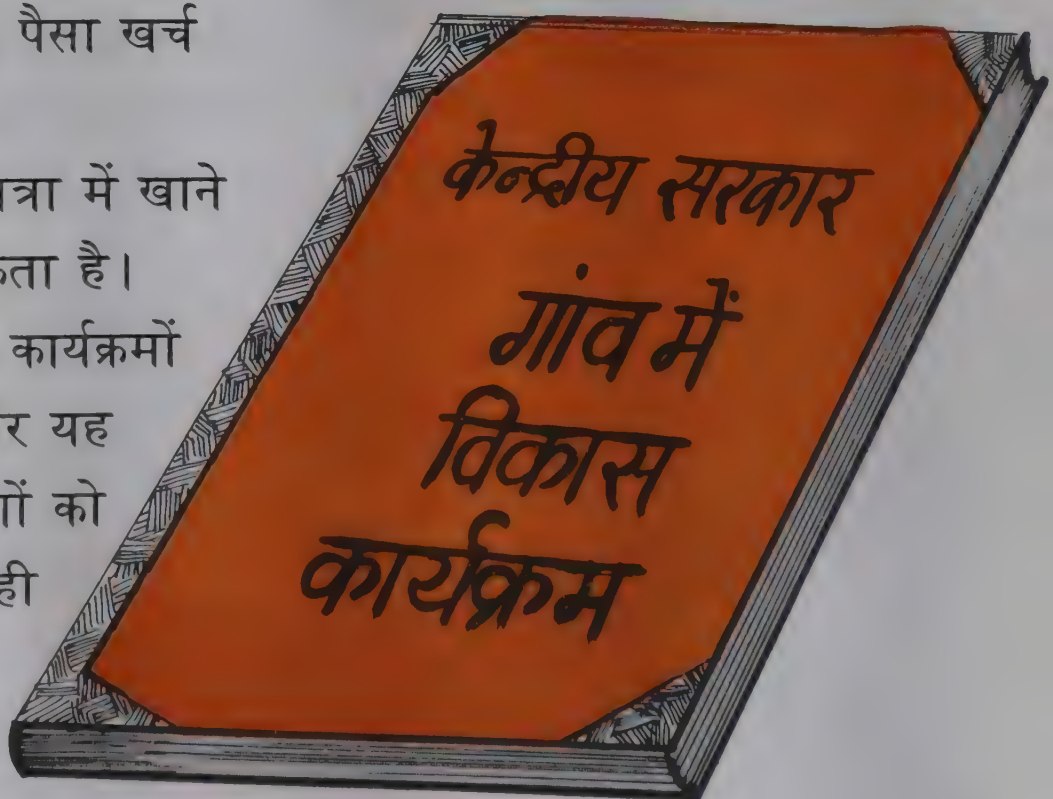 पैसा खर्च
त्रा में खाने
है।
कार्यक्रमों
यह
को
ही
केन्द्रीय सरकार
गांव में
विकास
कार्यक्रम